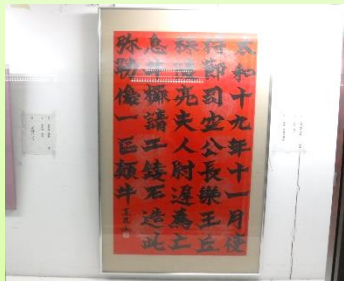 太和十九年十一月使
持節司空公長樂王丘
穆陵亮夫人尉遲為亡
息牛橛請工鏤石造此
弥勒像一區願牛